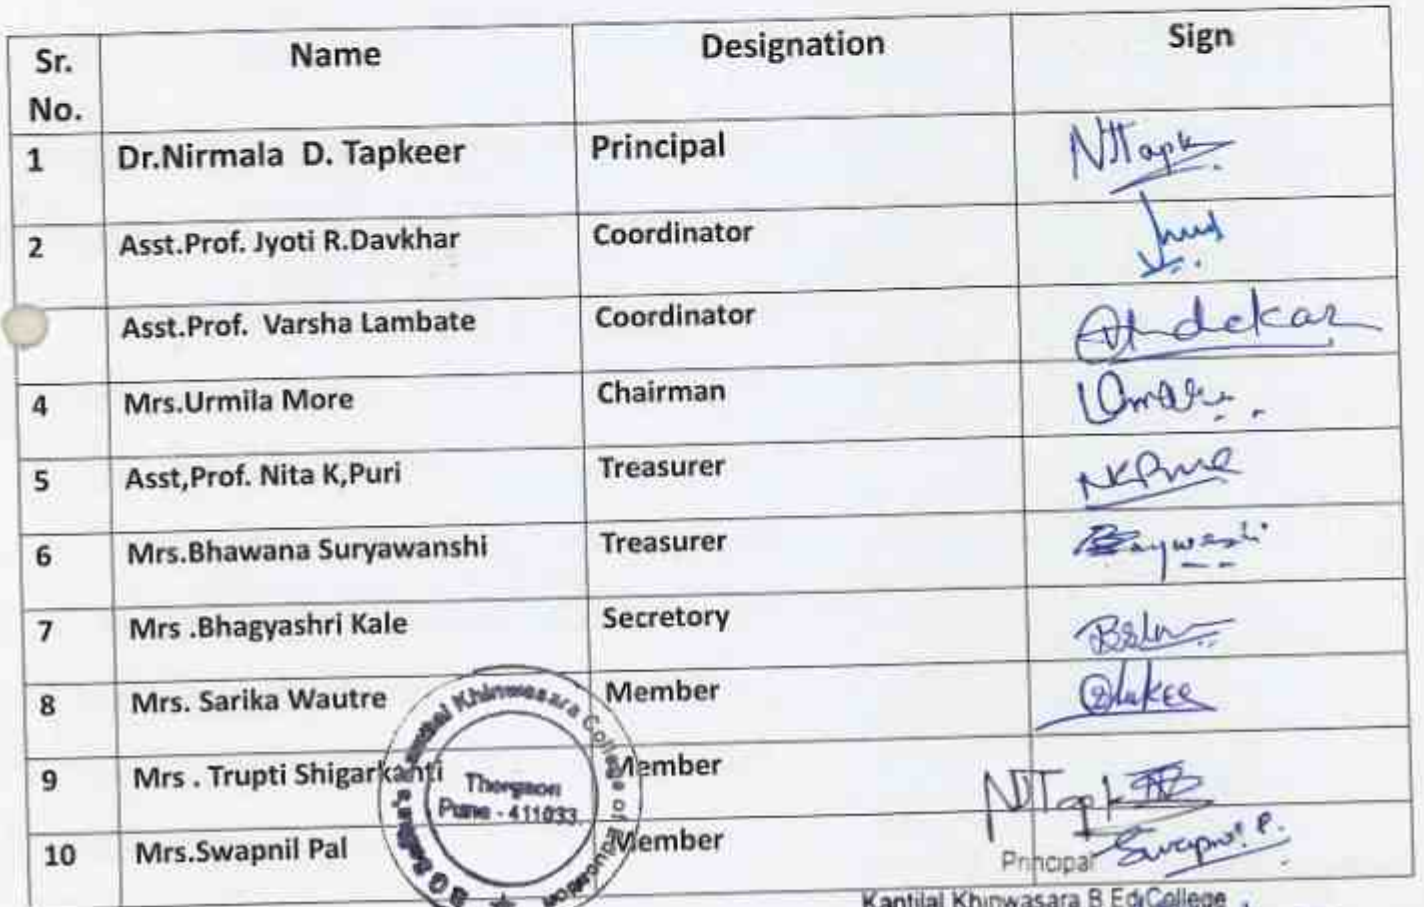 Sr. No. Name Designation Sign
1 Dr.Nirmala D. Tapkeer Principal NDTapk
2 Asst.Prof. Jyoti R.Davkhar Coordinator
Asst.Prof. Varsha Lambate Coordinator
4 Mrs.Urmila More Chairman
5 Asst,Prof. Nita K,Puri Treasurer
6 Mrs.Bhawana Suryawanshi Treasurer
7 Mrs .Bhagyashri Kale Secretory
8 Mrs. Sarika Wautre Member
9 Mrs . Trupti Shigarkanti Member NDTapk
10 Mrs.Swapnil Pal Member Swapnil P.
Khinwasara College of Education
Thergaon
Pune - 411033
Principal
Kantilal Khinwasara B.Ed.College